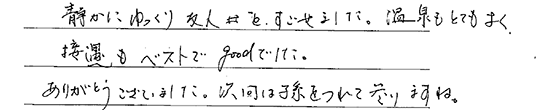 静かにゆっくり友人共をすごせました。温泉もとてもよく
接遇もベストでgoodでした。
ありがとうございました。次回は孫をつれて参りますね。